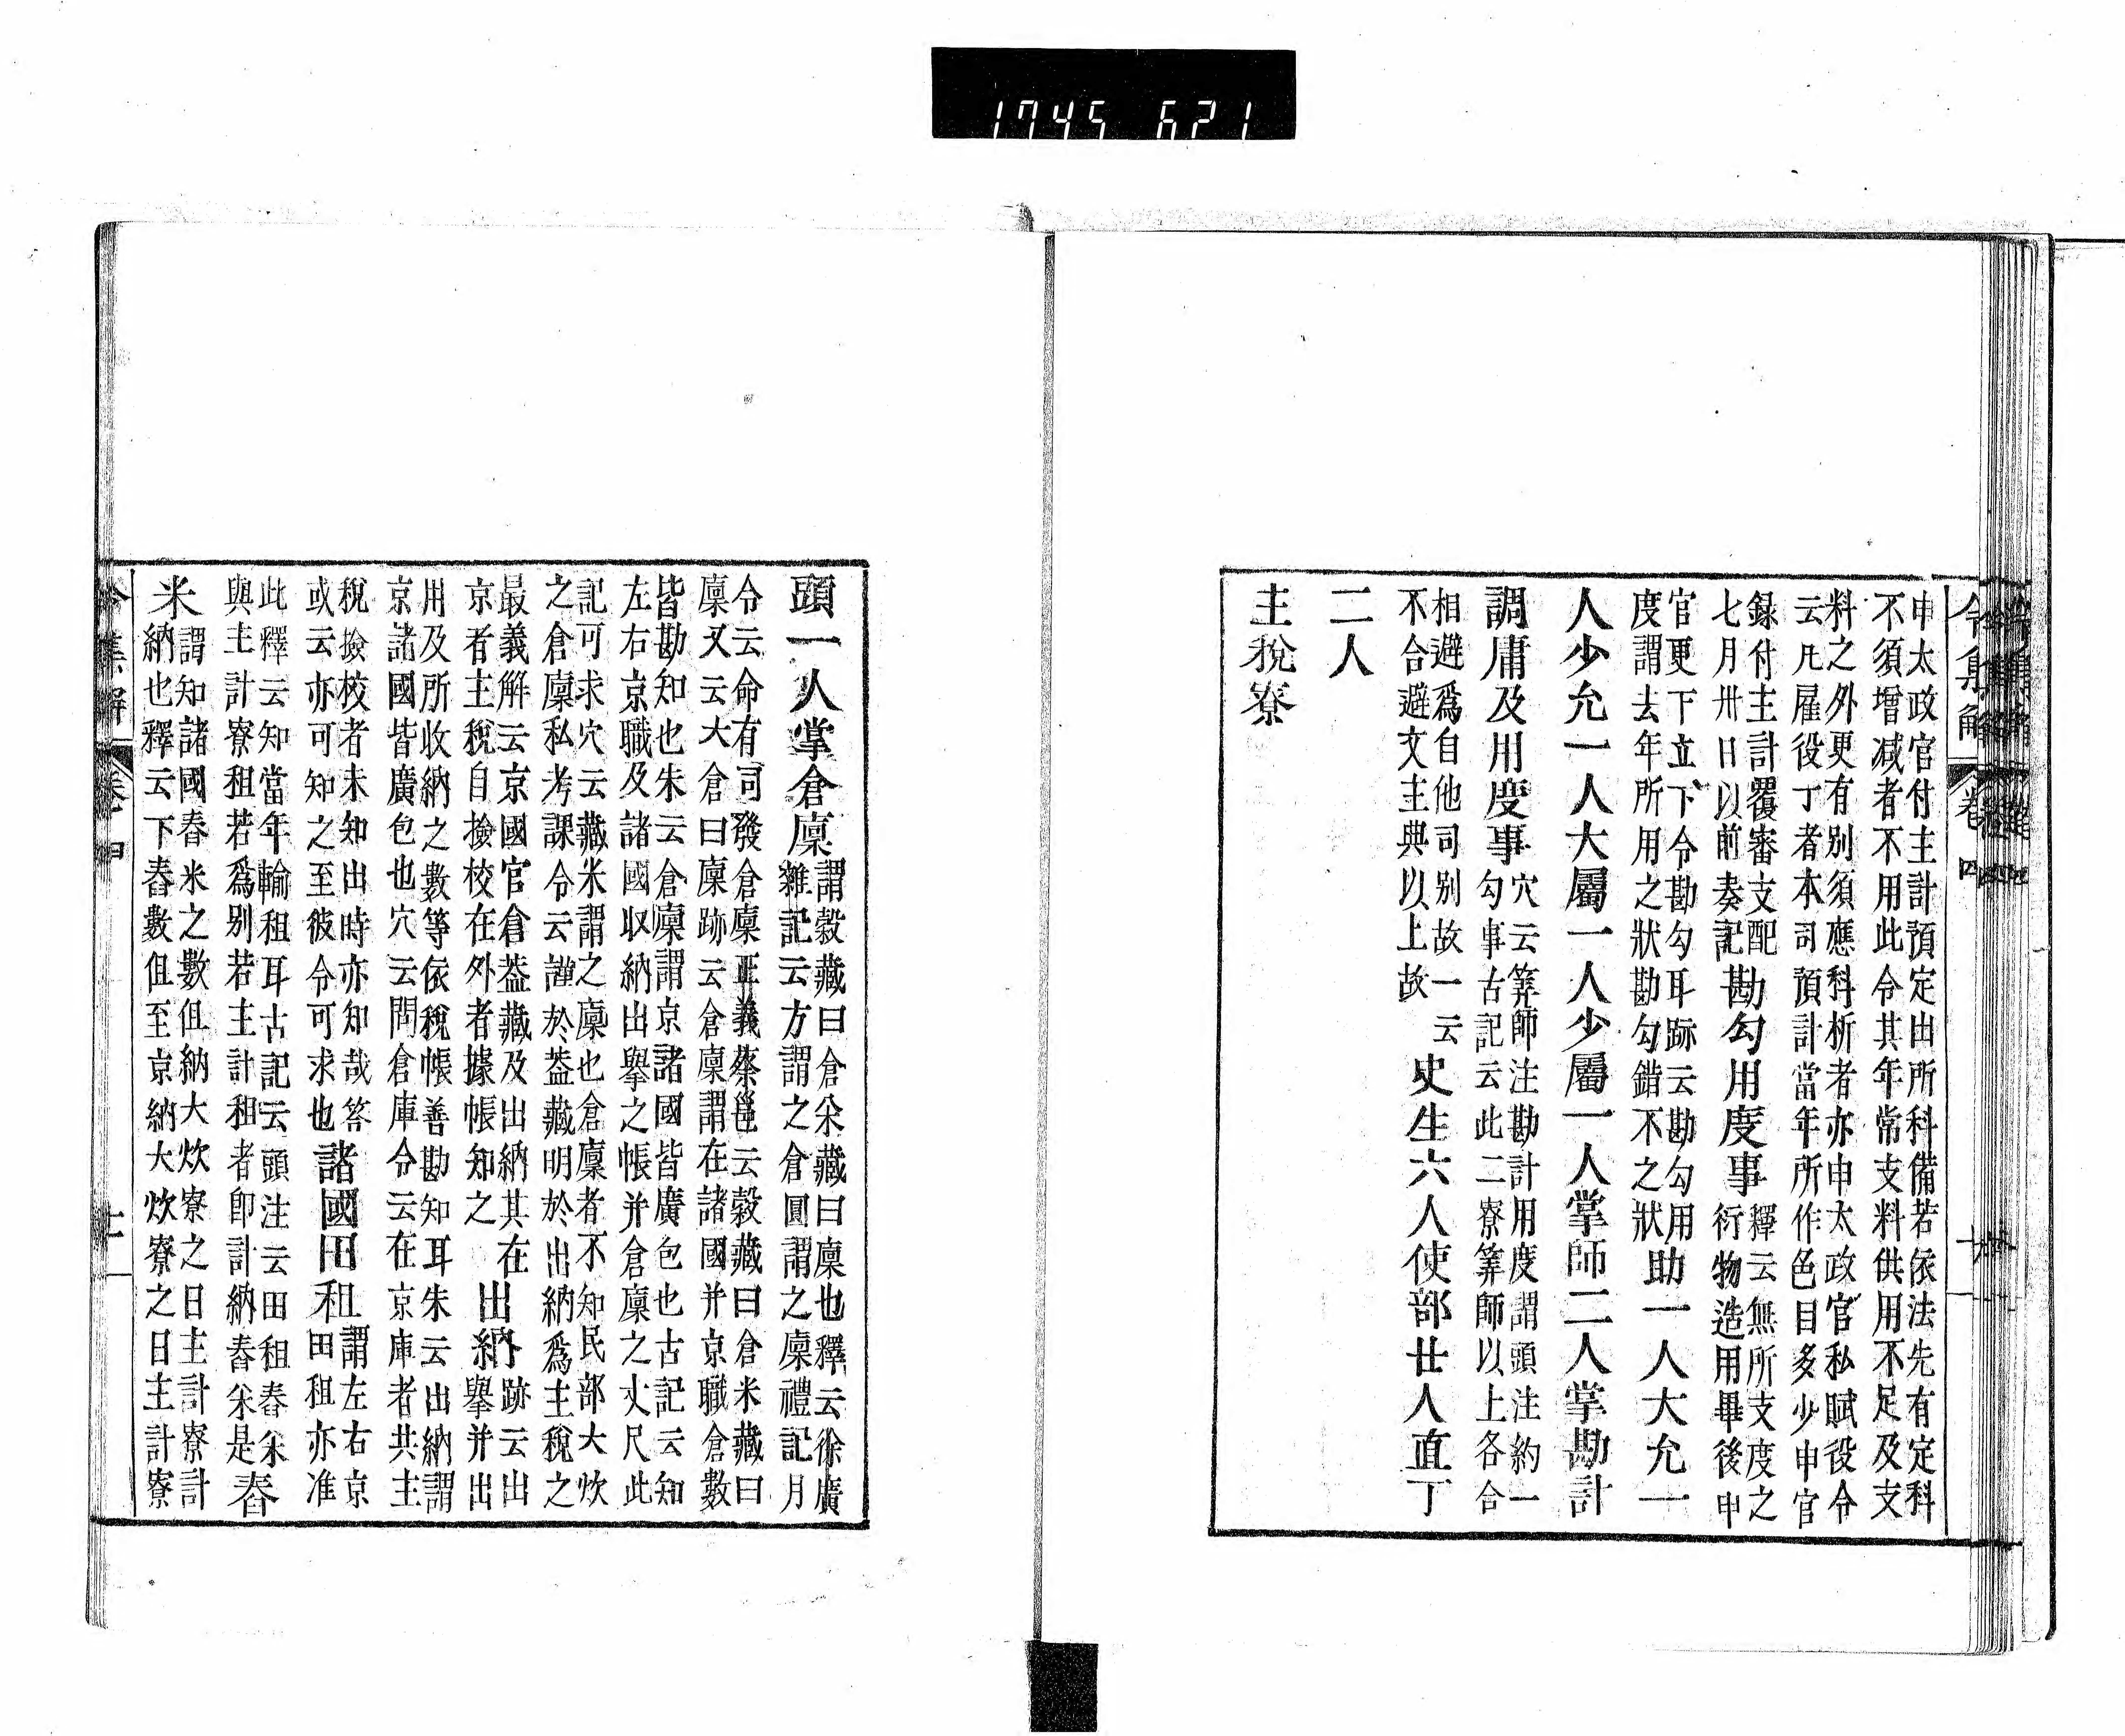 1745 621
申太政官付主計預定出所科備若依法先有定科
不須增减者不用此令其年常支料供用不足及支
料之外更有別須應科析者亦申太政官私賦役令
云凡雇役丁者本司預計當年所作色目多少申官
録付主計覆審支配
七月卅日以前奏記
勘勾用度事
釋云無所支度之
衍物造用畢後申
官更下立下令勘勾耳跡云勘勾用
度謂去年所用之狀勘勾錯不之狀
助一人大允一
人少允一人大屬一人少屬一人掌師二人掌勘計
調庸及用度事
穴云筭師注勘計用度謂頭注約一
勾事古記云此二寮筭師以上各合
相避爲自他司別故一云
不合避文主典以上故
史生六人使部廿人直丁
二人
主稅寮
令集解 卷四
頭一人掌倉廩
謂穀藏曰倉米藏曰廩也釋云徐廣
雜記云方謂之倉圓謂之廩禮記月
令云命有司發倉廩正義蔡邕云穀藏曰倉米藏曰
廩又云大倉曰廩跡云倉廩謂在諸國并京職倉數
皆勘知也朱云倉廩謂京諸國皆廣包也古記云知
左右京職及諸國収納出擧之帳并倉廩之丈尺此
記可求穴云藏米謂之廩也倉廩者不知民部大炊
之倉廩私考課令云謹於蓋藏明於出納爲主稅之
最義解云京國官倉蓋藏及出納其在
京者主稅自撿校在外者據帳知之
出納
跡云出
擧并出
用及所收納之數等依稅帳善勘知耳朱云出納謂
京諸國皆廣包也穴云問倉庫令云在京庫者共主
稅撿校者未知出時亦知哉答
或云亦可知之至彼令可求也
諸國田租
謂左右京
田租亦准
此釋云知當年輸租耳古記云頭注云田租舂米
與主計寮租若爲別若主計租者卽計納舂米是
舂
米
謂知諸國舂米之數但納大炊寮之日主計寮計
納也釋云下舂數但至京納大炊寮之日主計寮